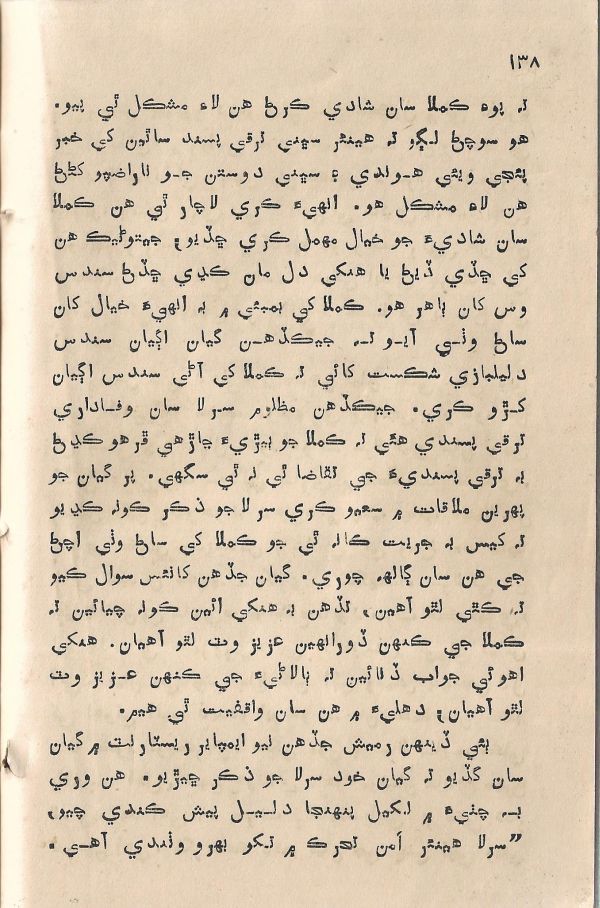 ١٣٨
تہ پوءِ ڪملا سان شادي ڪرڻ هن لاءِ مشڪل ٿي پيو.
هو سوچڻ لڳو تہ هينئر سڀني ترقي پسند ساٿين کي خبر
پئجي ويئي هوندي ۽ سڀني دوستن جو ناراضپو کڻڻ
هن لاءِ مشڪل هو. انهيءَ ڪري لاچار ٿي هن ڪملا
سان شاديءَ جو خيال مهمل ڪري ڇڏيو، جيتوڻيڪ هن
کي ڇڏي ڏيڻ يا هنکي دل مان ڪڍي ڇڏڻ سندس
وس کان ٻاهر هو. ڪملا کي بمبئي ۾ بہ انهيءَ خيال کان
ساڻ وٺي آيو تہ جيڪڏهن گيان اڳيان سندس
دليلبازي شڪست کائي تہ ڪملا کي آڻي سندس اڳيان
کڙو ڪري. جيڪڏهن مظلوم سرلا سان وفاداري
ترقي پسندي هئي تہ ڪملا جو ٻيڙيءَ چاڙهي ڦرهو ڪڍڻ
بہ ترقي پسنديءَ جي تقاضا ٿي نہ ٿي سگهي. پر گيان جو
پهرين ملاقات ۾ سعيو ڪري سرلا جو ذڪر کونہ ڪڍيو
تہ کيس بہ جريت کانہ ٿي جو ڪملا کي ساڻ وٺي اچڻ
جي هن سان ڳالهہ چوري. گيان جڏهن کانئس سوال ڪيو
تہ ڪٿي لٿو آهين، تڏهن بہ هنکي ائين کونہ چيائين تہ
ڪملا جي ڪنهن ڏورانهين عزيز وٽ لٿو آهيان. هنکي
اهوئي جواب ڏنائين تہ ٻالاڻيءَ جي ڪنهن عزيز وٽ
لٿو آهيان، دهليءَ ۾ هن سان واقفيت ٿي هيم.
ٻئي ڏينهن رميش جڏهن نيو ايمپاير ريسٽارنٽ ۾ گيان
سان گڏيو تہ گيان خود سرلا جو ذڪر ڇيڙيو. هن وري
بہ چٺيءَ ۾ لکيل پنهنجا دليل پيش ڪندي چيو،
”سرلا هينئر اَمن تحرڪ ۾ تکو بهرو وٺندي آهي.